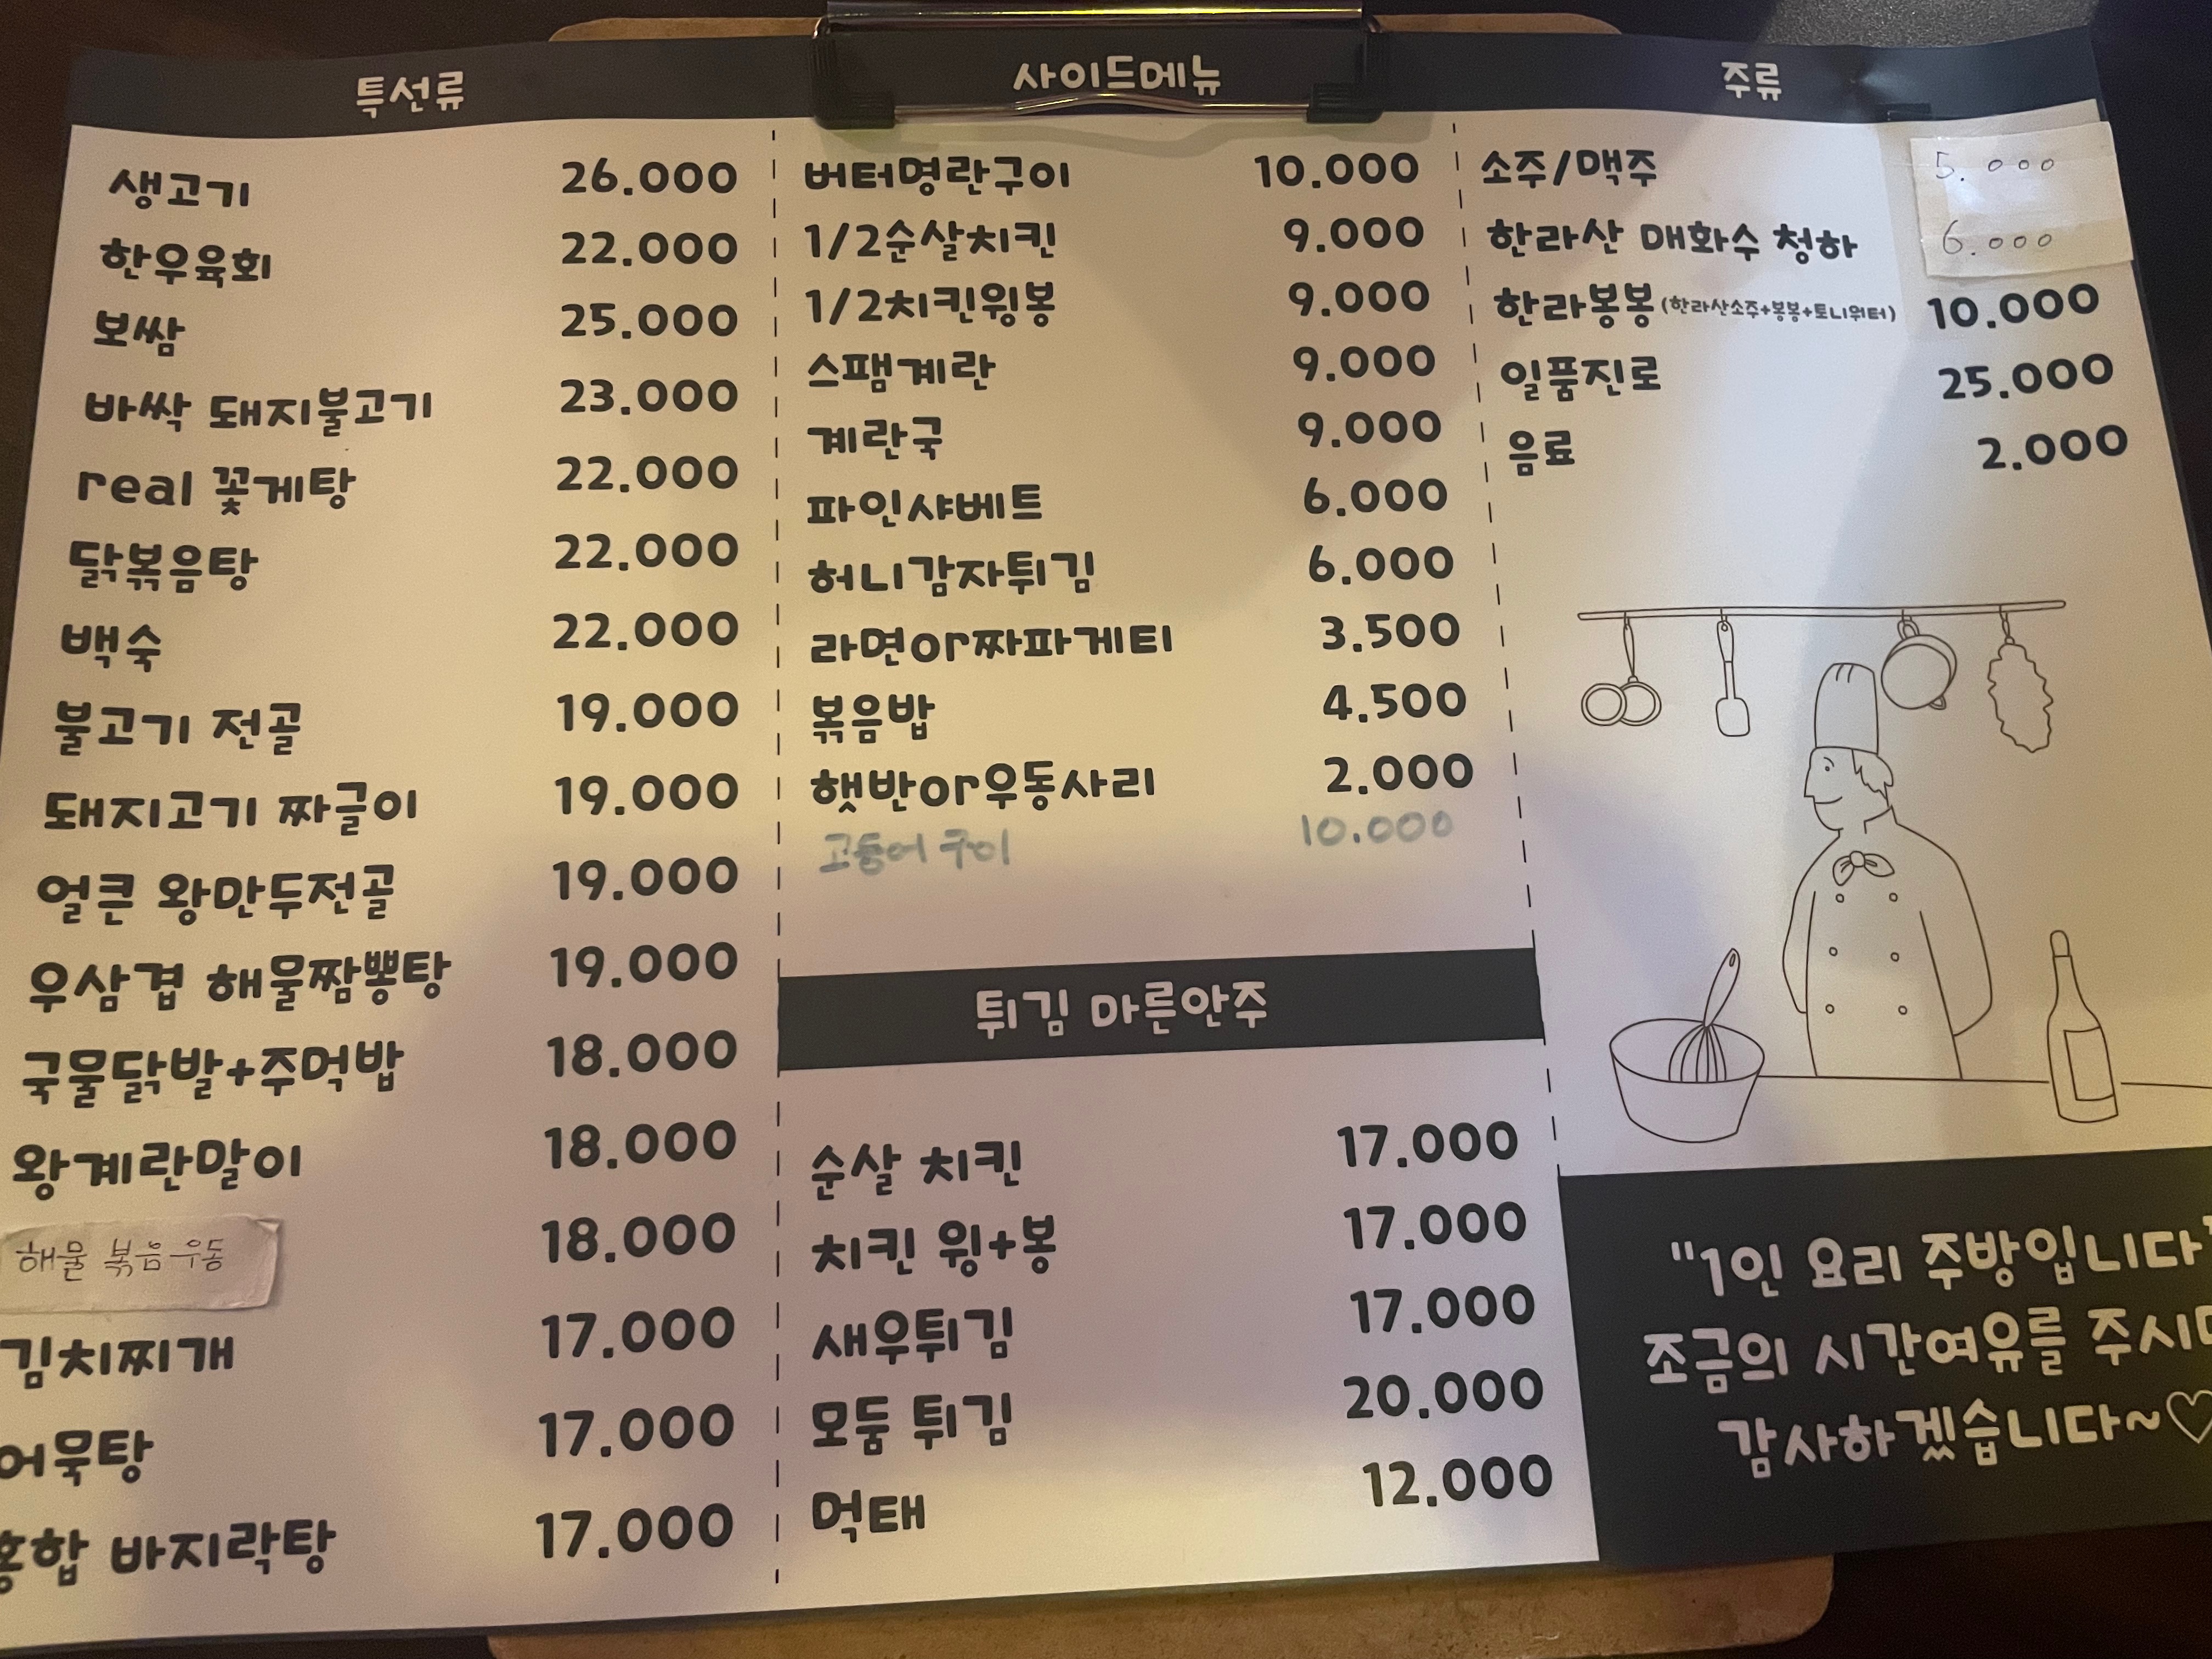 특선류
생고기 26.000
한우육회 22.000
보쌈 25.000
바싹 돼지불고기 23.000
real 꽃게탕 22.000
닭볶음탕 22.000
백숙 22.000
불고기 전골 19.000
돼지고기 짜글이 19.000
얼큰 왕만두전골 19.000
우삼겹 해물짬뽕탕 19.000
국물닭발+주먹밥 18.000
왕계란말이 18.000
해물 볶음우동 18.000
김치찌개 17.000
어묵탕 17.000
홍합 바지락탕 17.000
사이드메뉴
버터명란구이 10.000
1/2순살치킨 9.000
1/2치킨윙봉 9.000
스팸계란 9.000
계란국 9.000
파인샤베트 6.000
허니감자튀김 6.000
라면or짜파게티 3.500
볶음밥 4.500
햇반or우동사리 2.000
고등어 구이 10.000
튀김 마른안주
순살 치킨 17.000
치킨 윙+봉 17.000
새우튀김 17.000
모둠 튀김 20.000
먹태 12.000
주류
소주/맥주 5.000
한라산 매화수 청하 6.000
한라봉봉(한라산소주+봉봉+토니워터) 10.000
일품진로 25.000
음료 2.000
"1인 요리 주방입니다"
조금의 시간여유를 주시
감사하겠습니다~♡